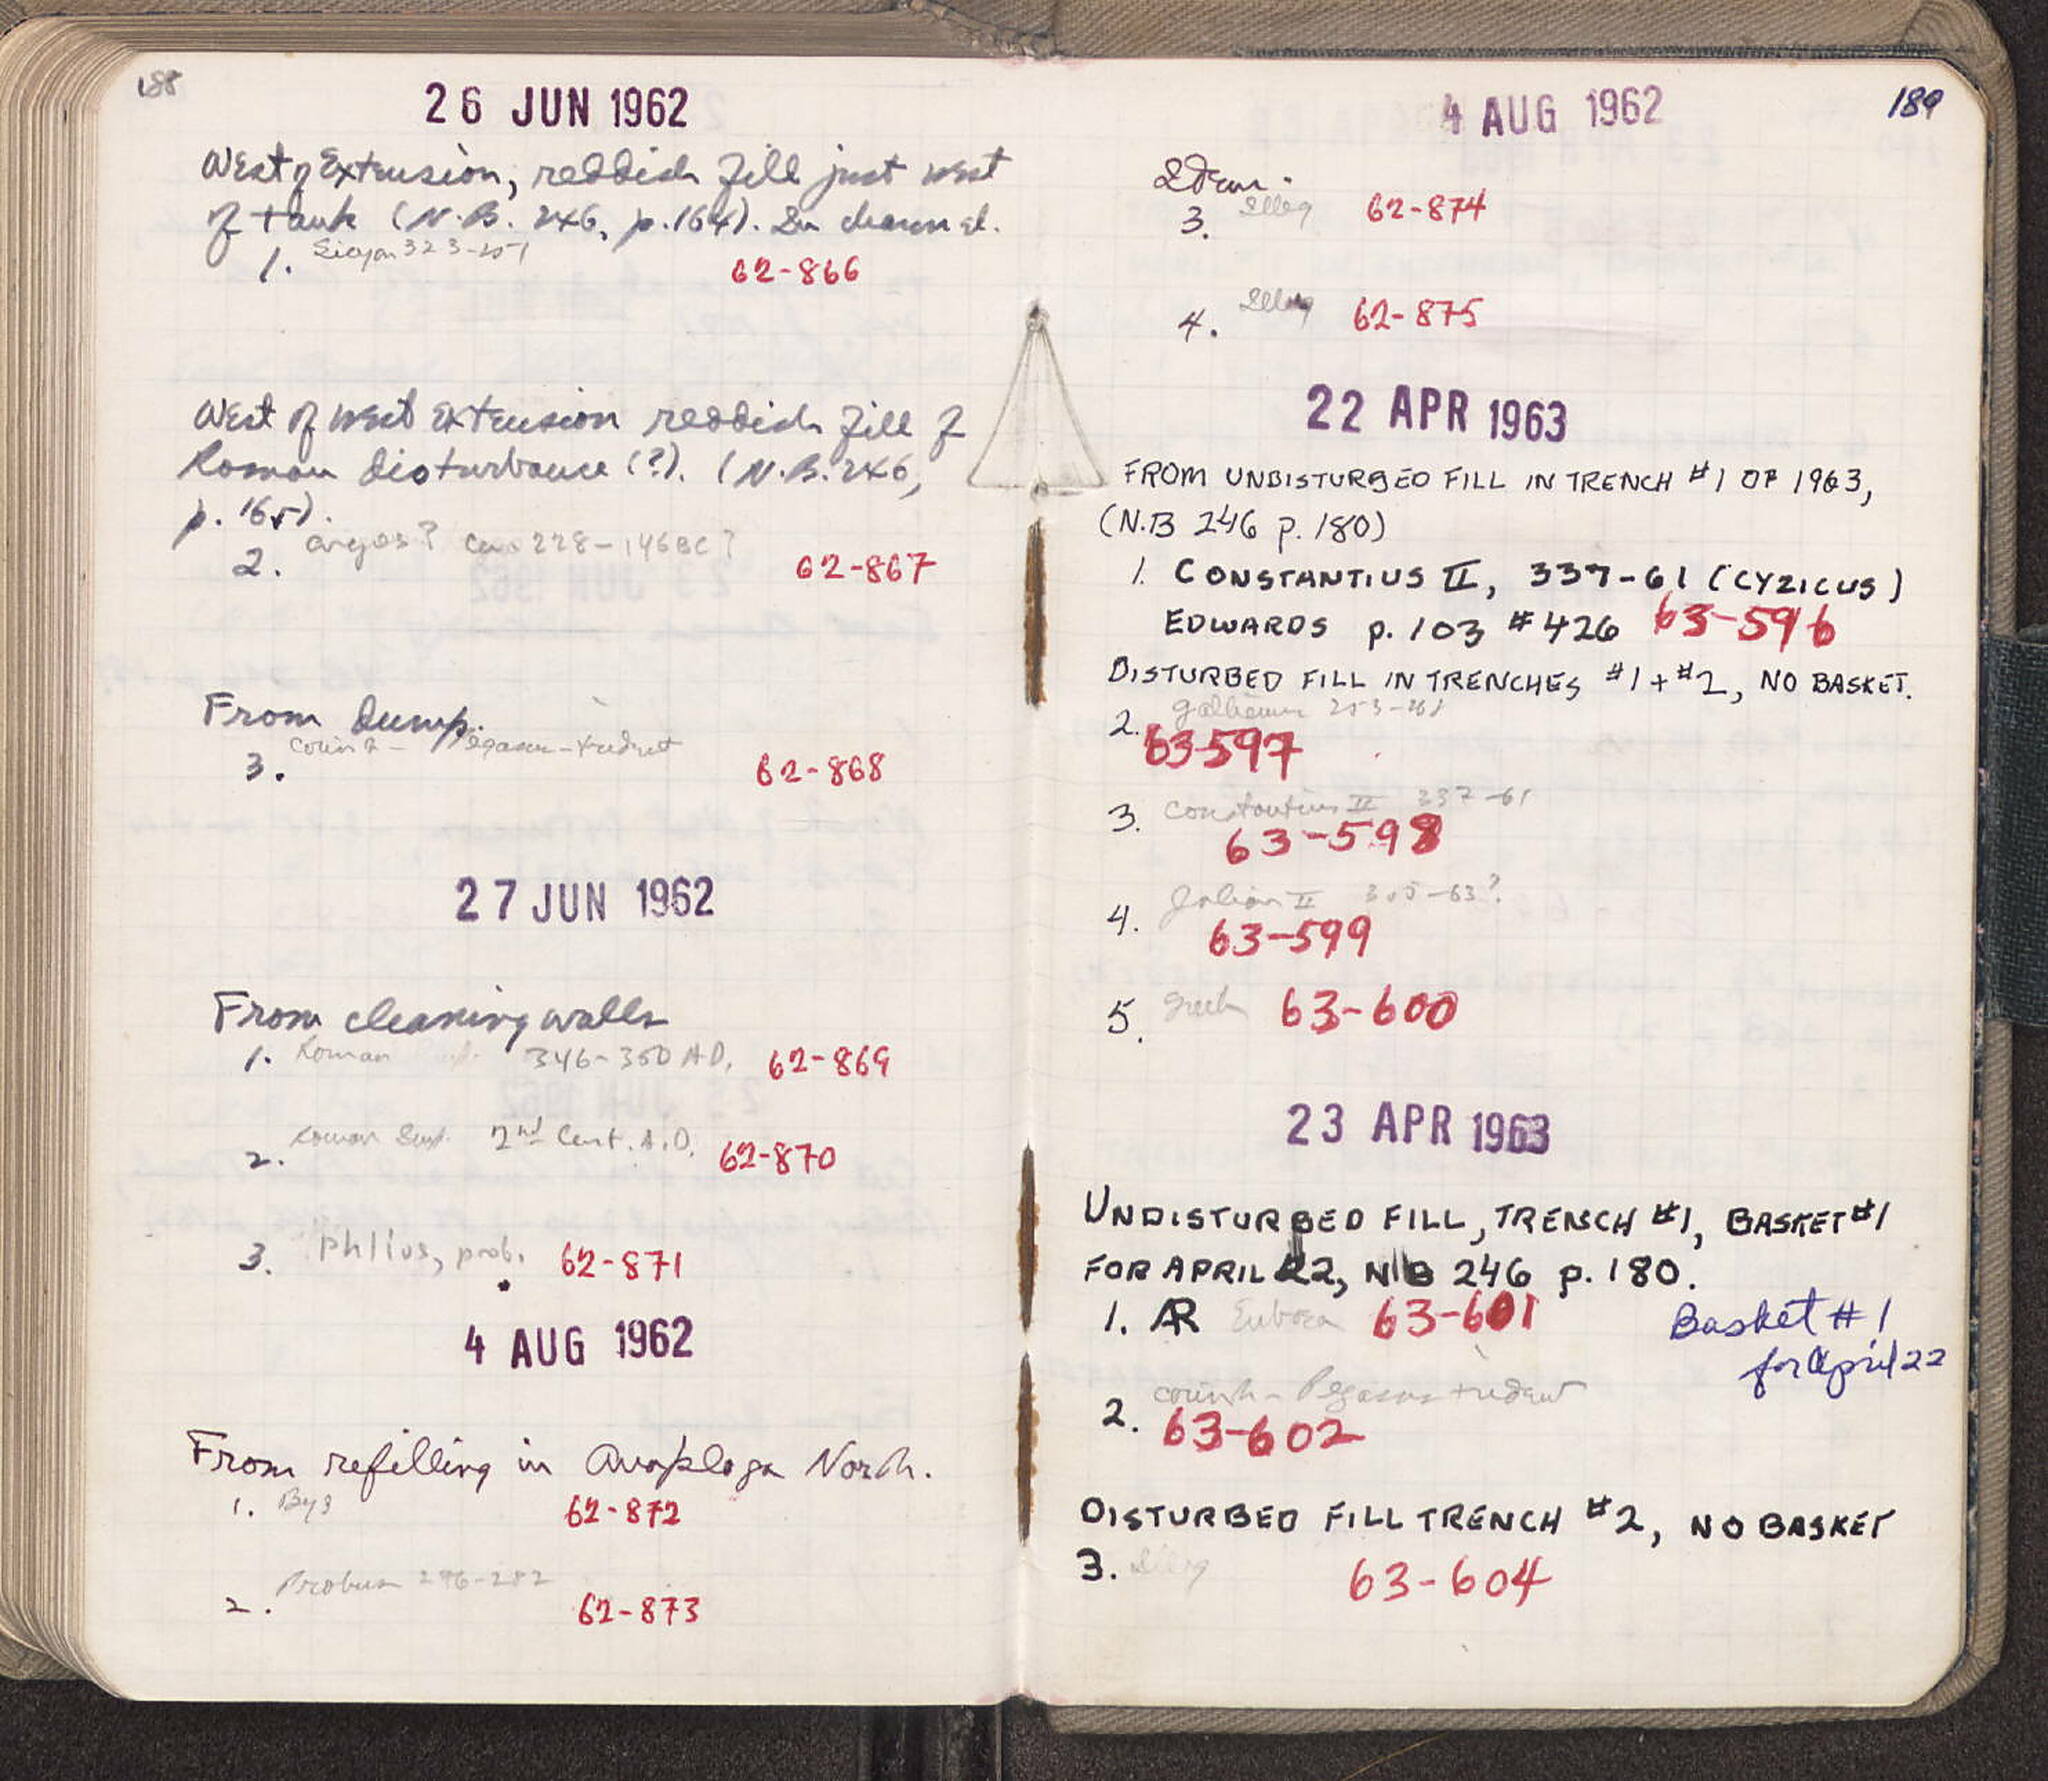 188
26 JUN 1962
West of Extension, reddish fill just west
of tank (N.B. 246, p.164). In channel.
1. Sicyon 323-251
62-866
West of west extension reddish fill of
Roman disturbance (?). (N.B. 246,
p. 165).
Argos? Ca. 228-146 BC?
2. 62-867
From dump.
Corinth - Pegasus-trident
3. 62-868
27 JUN 1962
From cleaning walls
1. Roman 346-350 A.D. 62-869
2. Roman Emp. 2nd Cent. A.D. 62-870
3. Phlius, prob. 62-871
4 AUG 1962
From refilling in Anaploga North.
1. Byz 62-872
2. Probus 276-282
62-873
189
4 AUG 1962
Idem.
3. Illeg 62-874
4. Illeg 62-875
22 APR 1963
FROM UNDISTURBED FILL IN TRENCH #1 OF 1963,
(N.B 246 p. 180)
1. CONSTANTIUS II, 337-61 (CYZICUS)
EDWARDS p. 103 #426 63-596
DISTURBED FILL IN TRENCHES #1 + #2, NO BASKET.
2. Gallienus 253-268
63-597
3. Constantius II 337-61
63-598
4. Julian II 355-63?
63-599
5. Greek 63-600
23 APR 1963
UNDISTURBED FILL, TRENCH #1, BASKET #1
FOR APRIL 22, NB 246 p. 180.
1. AR Euboea 63-601
Basket #1
for April 22
2. Corinth - Pegasus trident
63-602
DISTURBED FILL TRENCH #2, NO BASKET
3. Illeg 63-604